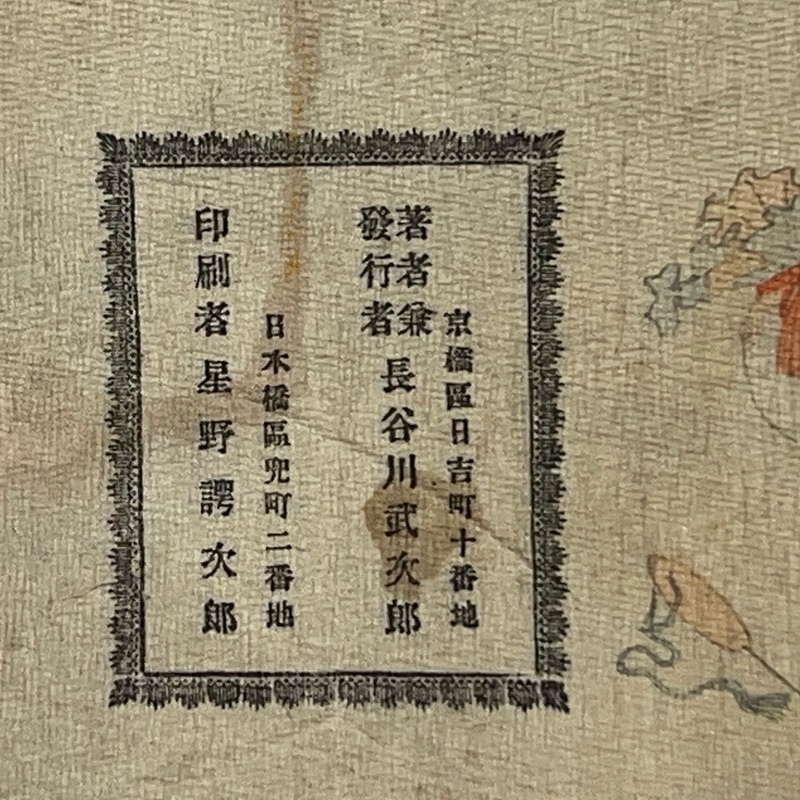 京橋區日吉町十番地
著者兼
發行者
長谷川武次郎
日本橋區兜町二番地
印刷者 星野諤次郎